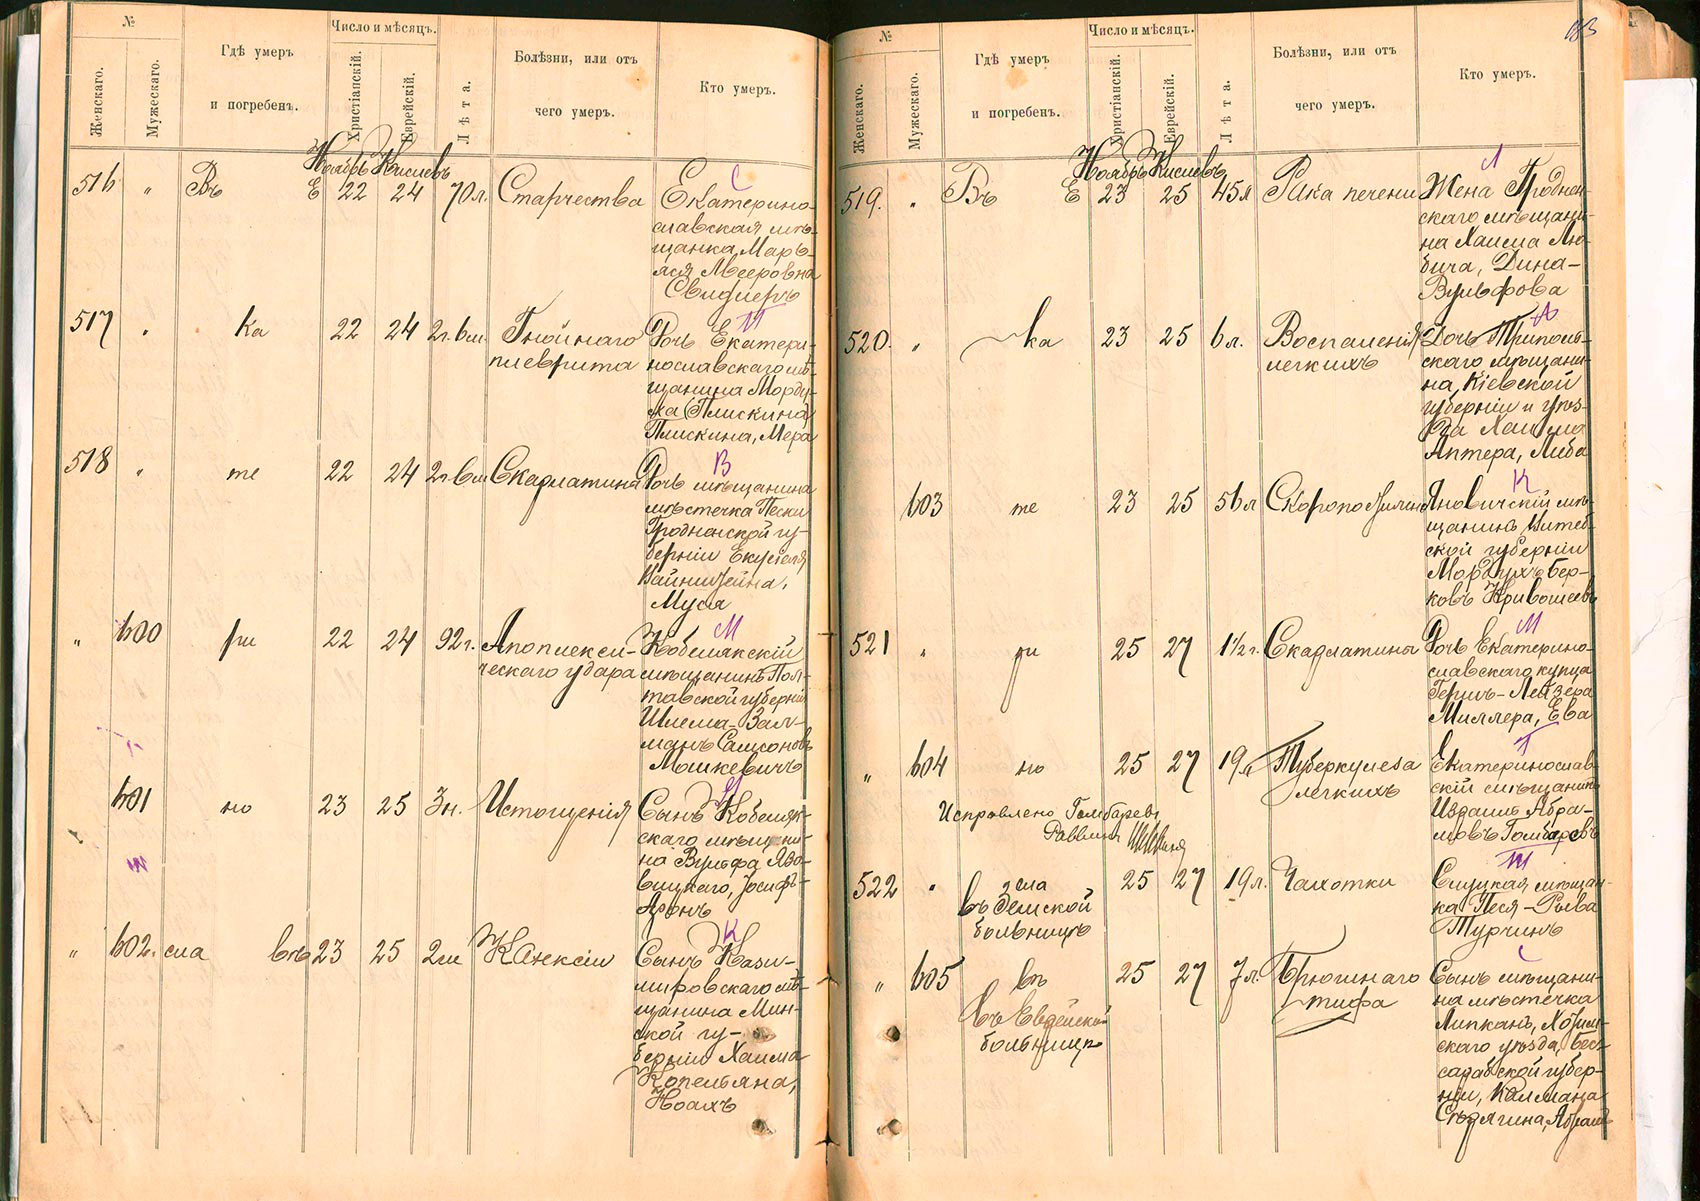 №
Женскаго.
Мужескаго.
Гдѣ умеръ
и погребенъ.
Число и мѣсяцъ.
Христіанскій.
Еврейскій.
Лѣта.
Болѣзни, или отъ
чего умеръ.
Кто умеръ.
Ноябрь Кислевъ
516 " Въ Е 22 24 70 л. Старчества
С
Екатерино-
славская мѣ-
щанка, Марь-
яся Мееровна
517 " ка 22 24 2 г. 6 м. Гнойнаго
плеврита
П
Дочь Екатери-
нославскаго мѣ-
щанина Морду-
ха Плискина
Плискина, Мера
518 " те 22 24 2 г. 6 м. Скарлатина
В
Дочь мѣщанина
мѣстечка Пески
Гродненской гу-
берніи
Вайнштейна,
Муся
" 600 ри 22 24 92 г. Апоплекси-
ческаго удара
М
Кобелякскій
мѣщанинъ Пол-
тавской губерніи
Шлема-Зал-
манъ Самсоновъ
Мошкевичъ
601 но 23 25 3 н. Истощенія
Сынъ Кобеляк-
скаго мѣщани-
на Вульфа Яво-
вицкаго, Іосифъ-
Аронъ
" 602. сла въ 23 25 2 м
К
Сынъ Кази-
мировскаго мѣ-
щанина Мин-
ской гу-
берніи Хаима
Копельяна,
Ноахъ
183
№
Женскаго.
Мужескаго.
Гдѣ умеръ
и погребенъ.
Число и мѣсяцъ.
Христіанскій.
Еврейскій.
Лѣта.
Болѣзни, или отъ
чего умеръ.
Кто умеръ.
Ноябрь Кислевъ
519. " Въ Е 23 25 45 л Рака печени
Л
Жена Гроднен-
скаго мѣщани-
на Хаима Лю-
бича, Дина-
Вульфова
520. " ка 23 25 6 л. Воспаленія
легкихъ
А
Дочь Триполь-
скаго мѣщани-
на, Кіевской
губерніи и уѣз-
да Хаима
Аптера, Либа
603 те 23 25 56 л Скоропостижно
К
Яновичскій мѣ-
щанинъ Витеб-
ской губерніи
Мордухъ Бер-
ковъ Кривошеевъ
521 " ри 25 27 1½ г. Скарлатина
М
Дочь Екатерино-
славскаго купца
Гершъ-Лейзера
Миллера, Ева
" 604 но 25 27 19 л Туберкулеза
легкихъ
Г
Екатеринослав-
скій мѣщанинъ
Абра-
мовъ Гомбаревъ
Исправлено Гомбаревъ
Раввинъ
522 " сла 25 27 19 л. Чахотки
въ Земской
больницѣ
Т
Слуцкая мѣщан-
ка Песя-Рыва
Турчинъ
" 605 въ 25 27 7 л. Брюшнаго
тифа
въ Еврейской
больницѣ
С
Сынъ мѣщани-
на мѣстечка
Липканъ, Хотин-
скаго уѣзда, Бес-
сарабской губер-
ніи, Калмана
Сѣдлгина, Абрамъ